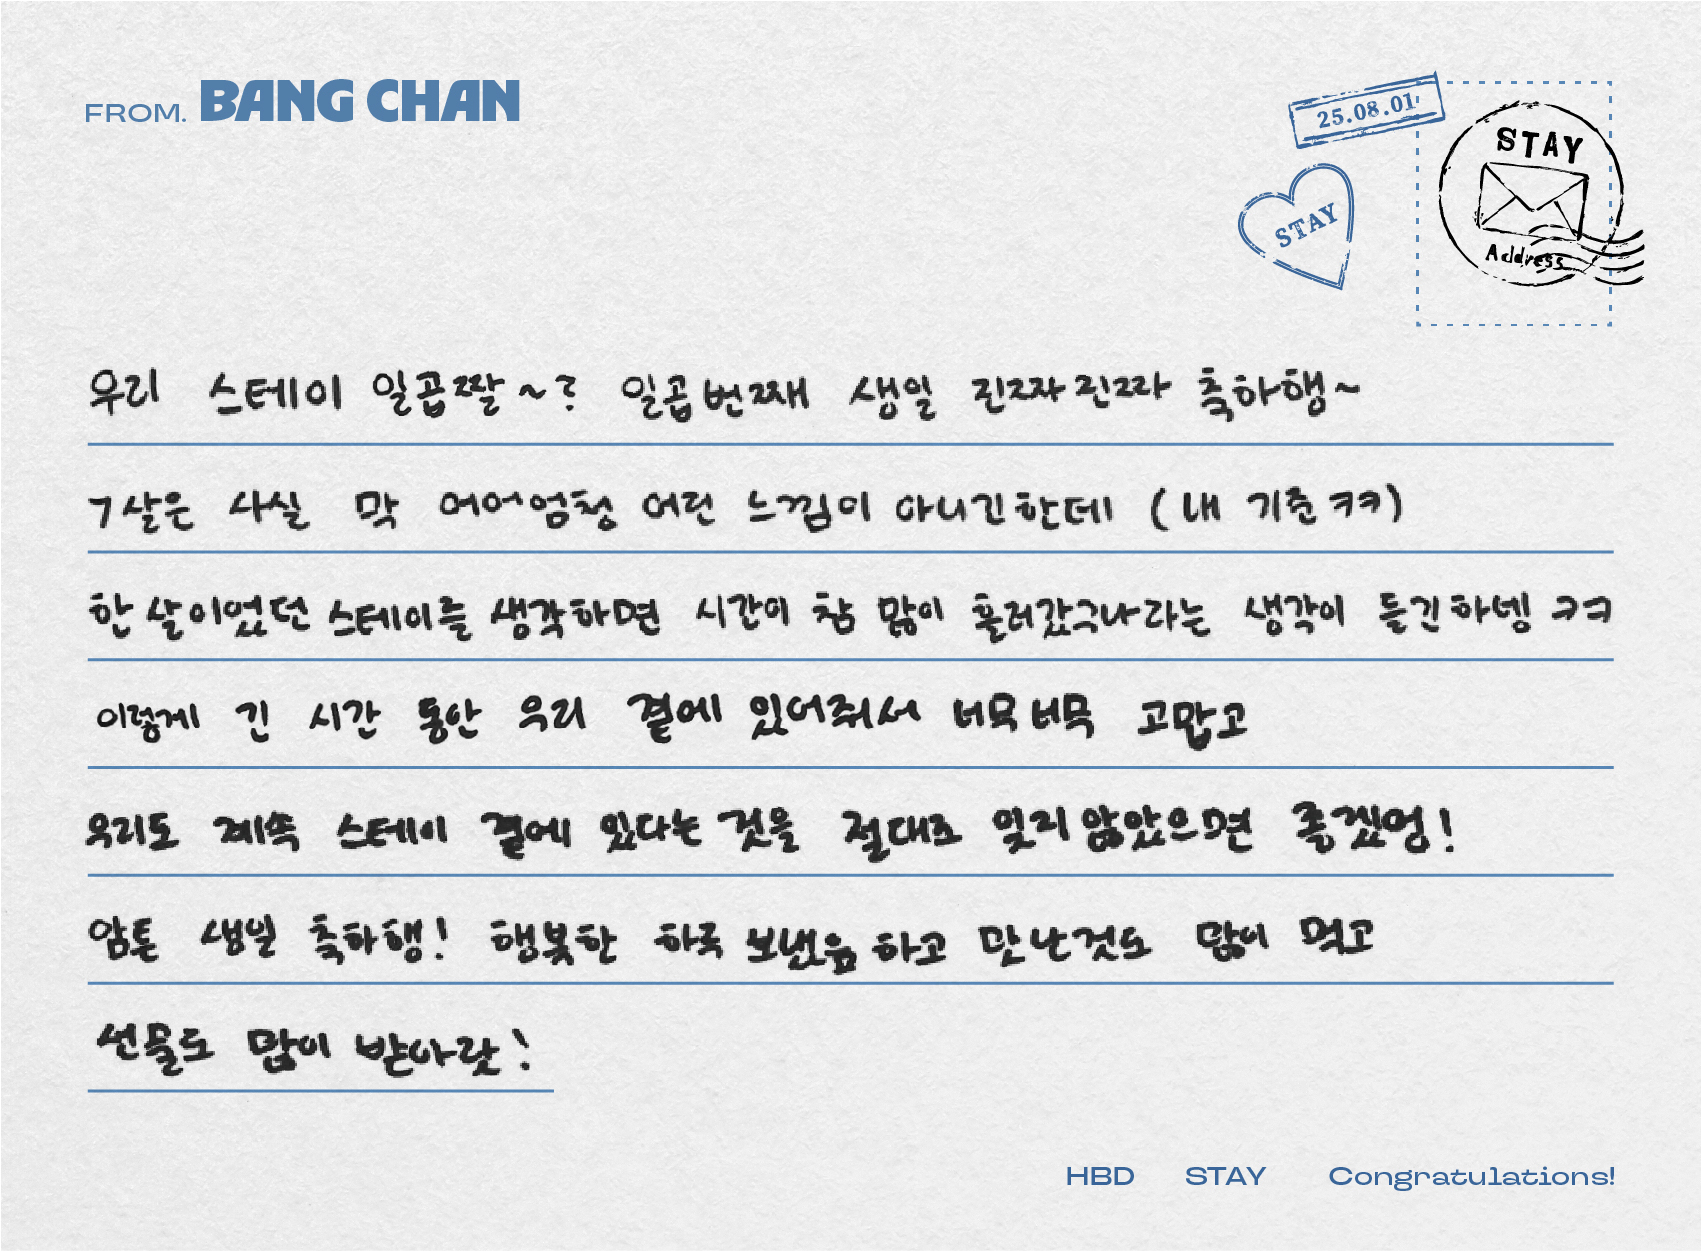 FROM. BANG CHAN
25.08.01
STAY
Address
STAY
우리 스테이 일곱짤~? 일곱번째 생일 진짜진짜 축하행~
7살은 사실 막 어어엄청 어린 느낌이 아니긴한데 (내 기준ㅋㅋ)
한살이었던 스테이를 생각하면 시간이 참 많이 흘러갔구나라는 생각이 들긴하넹 ㅋㅋ
이렇게 긴 시간 동안 우리 곁에 있어줘서 너무너무 고맙고
우리도 계속 스테이 곁에 있다는 것을 절대로 잊지않았으면 좋겠엉!
암튼 생일 축하행! 행복한 하루 보냈음하고 맛난것도 많이 먹고
선물도 많이 받아랏!
HBD STAY Congratulations!